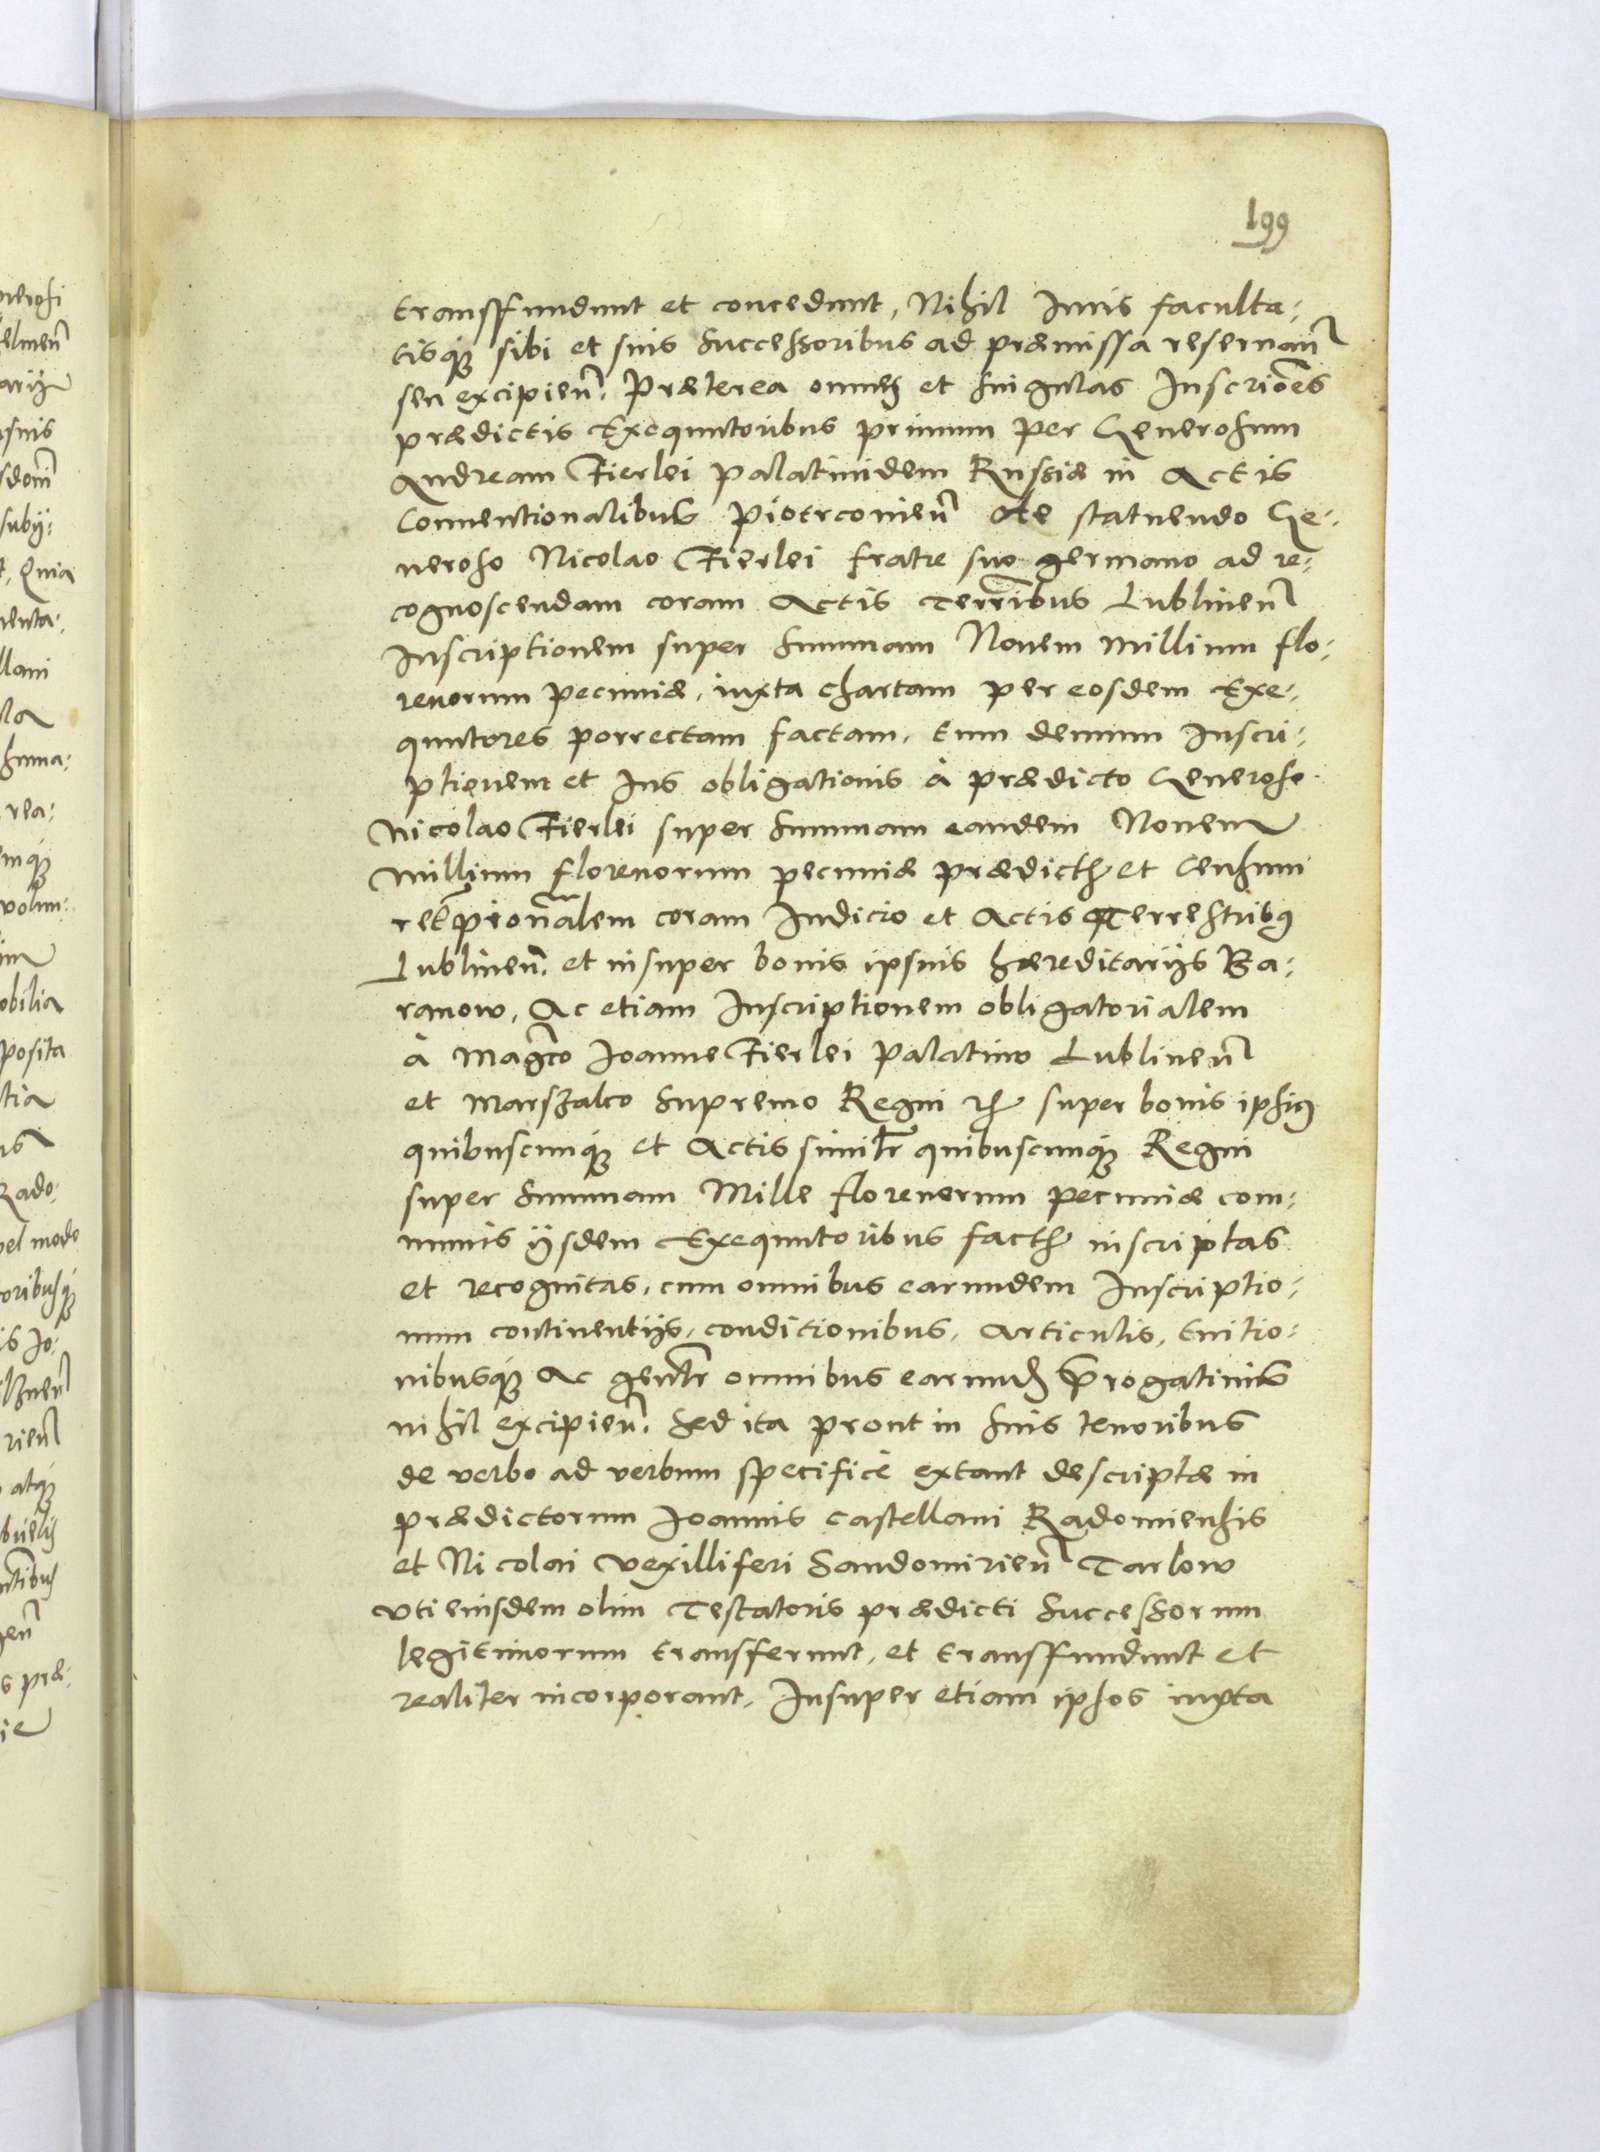 199
transffundunt et concedunt, Nihil Iuris faculta-
tisq́ue sibi et suis successoribus ad præmissa reseruan̄
seu excipien̄. Præterea omnes et singulas Inscriōes
prædictis Exequutoribus primum per Generosum
Andream Firlei palatinidem Russiæ in Actis
Conuentionalibus Piotrconien̄ de statuendo Ge-
neroso Nicolao Firlei fratre suo germano ad re-
cognoscendam coram Actis Terrībus Lublinen̄
Inscriptionem super summam Nouem millium flo-
renorum pecuniæ, iuxta chartam per eosdem Exe-
quutores porrectam factam, tum demum Inscri-
ptionem et Ius obligationis à prædicto Generoso
Nicolao Firlei super summam eandem Nouem
millium florenorum pecuniæ prædictæ et Censum
coram Iudicio et Actis Terrestribus
Lublinen̄. et in super bonis ipsius hæreditarijs Ba-
ranow, Ac etiam Inscriptionem obligatorialem
à Magco Ioanne Firlei Palatino Lublinen̄
et Marszalco supremo Regni super bonis ipsius
quibuscunq́ue et Actis similr quibuscunq́ue Regni
super summam Mille florenorum pecuniæ com-
munis ijsdem Exequutoribus factas inscriptas
et recognitas, cum omnibus earundem Inscriptio-
num continentijs, conditionibus, Articulis, Euitio-
nibusq́ue Ac genlr omnibus earund prerogatiuis
nihil excipien̄. Sed ita prout in suis tenoribus
de verbo ad verbum specificè extant descriptæ in
prædictorum Ioannis Castellani Radomiensis
et Nicolai Vexilliferi Sandomirien̄ Tarlow
vti eiusdem olim Testatoris prædicti Successorum
legitimorum transferunt, et transffundunt et
realiter incorporant, Insuper etiam ipsos iuxta